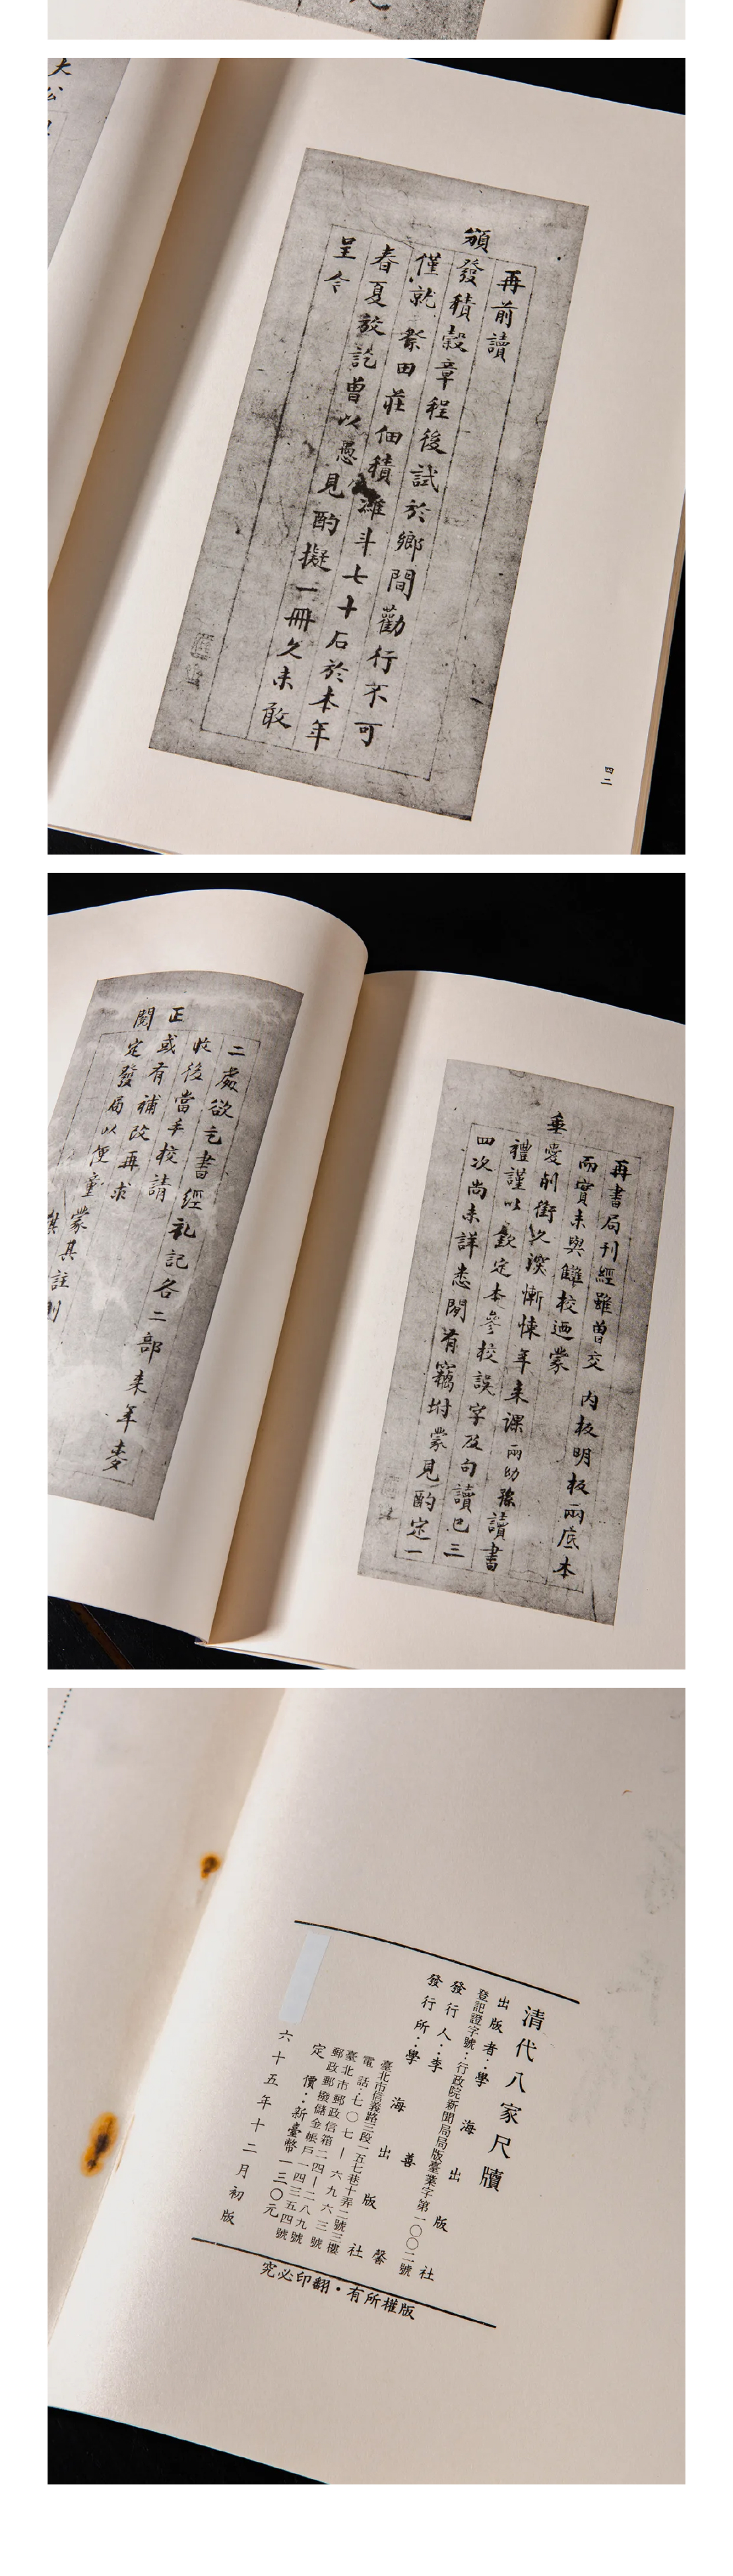 大
公
再前讀
頒
發積穀章程後試於鄉間勸行不可
僅就祭田莊佃積濰斗七十石於本年
春夏放訖曾以愚見酌擬一冊久未敢
呈今
四二
二處欲乞書經礼記各二部来年麥
收後當手校請
正
或有補改再求
閱
定發局以便童蒙其註則
再書局刊經雖曾交內板明板兩底本
而實未與讎校迺蒙
垂
愛削銜之深慚悚年来课兩幼孫讀書
禮謹以欽定本參校誤字及句讀已三
四次尚未詳悉閒有竊坿蒙見酌定一
清代八家尺牘
出版者：學海出版社
登記證字號：行政院新聞局局版臺業字第一〇〇二號
發行人：李善馨
發行所：學海出版社
臺北市信義路三段一五七巷十弄二號三樓
電話：七〇七一六九六三號
臺北市郵政信箱二四—二八九號
郵政郵撥儲金帳戶一四三五四號
定價：新臺幣一三〇元
六十五年十二月初版
版權所有・翻印必究